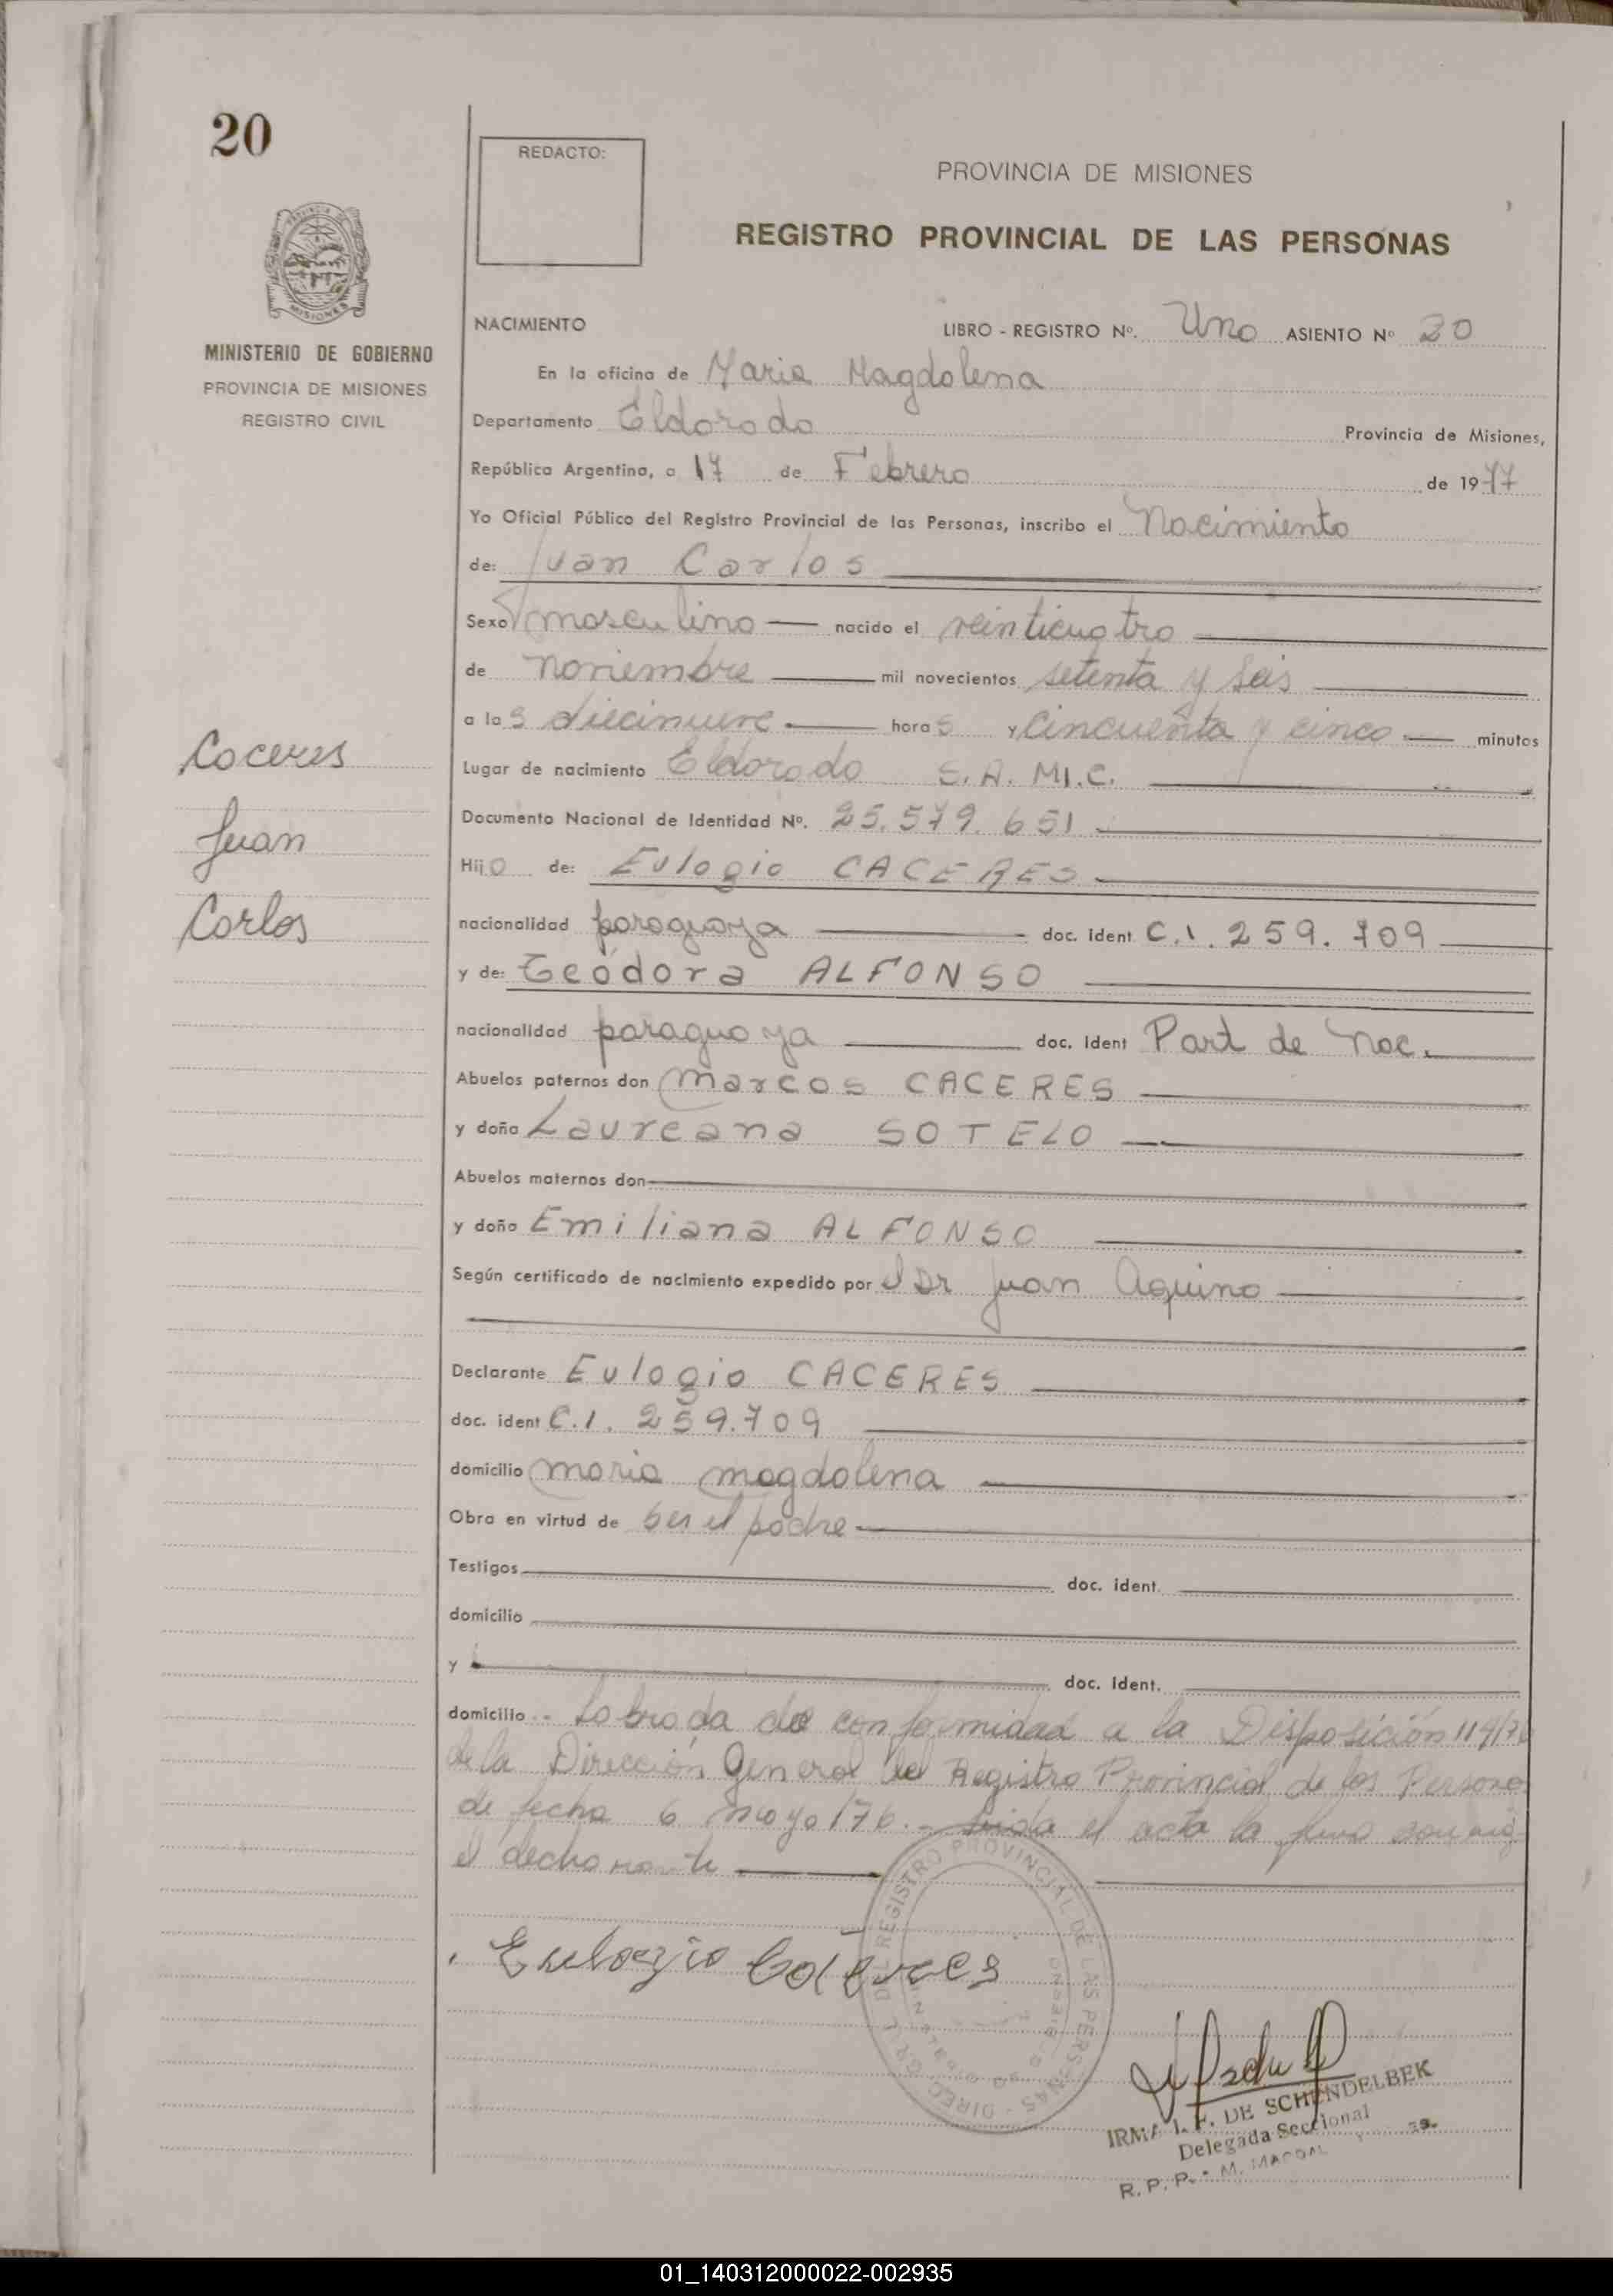 20
REDACTO:
PROVINCIA DE MISIONES
REGISTRO PROVINCIAL DE LAS PERSONAS
MINISTERIO DE GOBIERNO
PROVINCIA DE MISIONES
REGISTRO CIVIL
NACIMIENTO
LIBRO - REGISTRO Nº. Uno ASIENTO Nº 20
En la oficina de Maria Magdalena
Departamento Eldorado Provincia de Misiones,
República Argentina, a 17 de Febrero de 1977
Yo Oficial Público del Registro Provincial de las Personas, inscribo el Nacimiento
de: Juan Carlos
Sexo masculino nacido el veinticuatro
de noviembre mil novecientos setenta y seis
a las diecinueve horas y cincuenta y cinco minutos
Lugar de nacimiento Eldorado S.A.MI.C.
Documento Nacional de Identidad Nº. 25.579.651
Hijo de: Eulogio CACERES
nacionalidad paraguaya doc. ident C.I. 259.709
y de: Teodora ALFONSO
nacionalidad paraguaya doc. ident Part de Nac.
Abuelos paternos don Marcos CACERES
y doña Laureana SOTELO
Abuelos maternos don
y doña Emiliana ALFONSO
Según certificado de nacimiento expedido por el Dr Juan Aquino
Declarante Eulogio CACERES
doc. ident C.I. 259.709
domicilio Maria Magdalena
Obra en virtud de ser el padre
Testigos doc. ident.
domicilio
y doc. ident.
domicilio.- Labrada de conformidad a la Disposición 114/76
de la Dirección General del Registro Provincial de las Personas
de fecha 6 mayo/76.- Leida el acta la firma conmigo
el declarante
Caceres
Juan
Carlos
Eulogio Caceres
REGISTRO PROVINCIAL DE LAS PERSONAS
IRMA I. F. DE SCHENDELBEK
Delegada Seccional
R. P. P. - M. MAGDAL
01_140312000022-002935